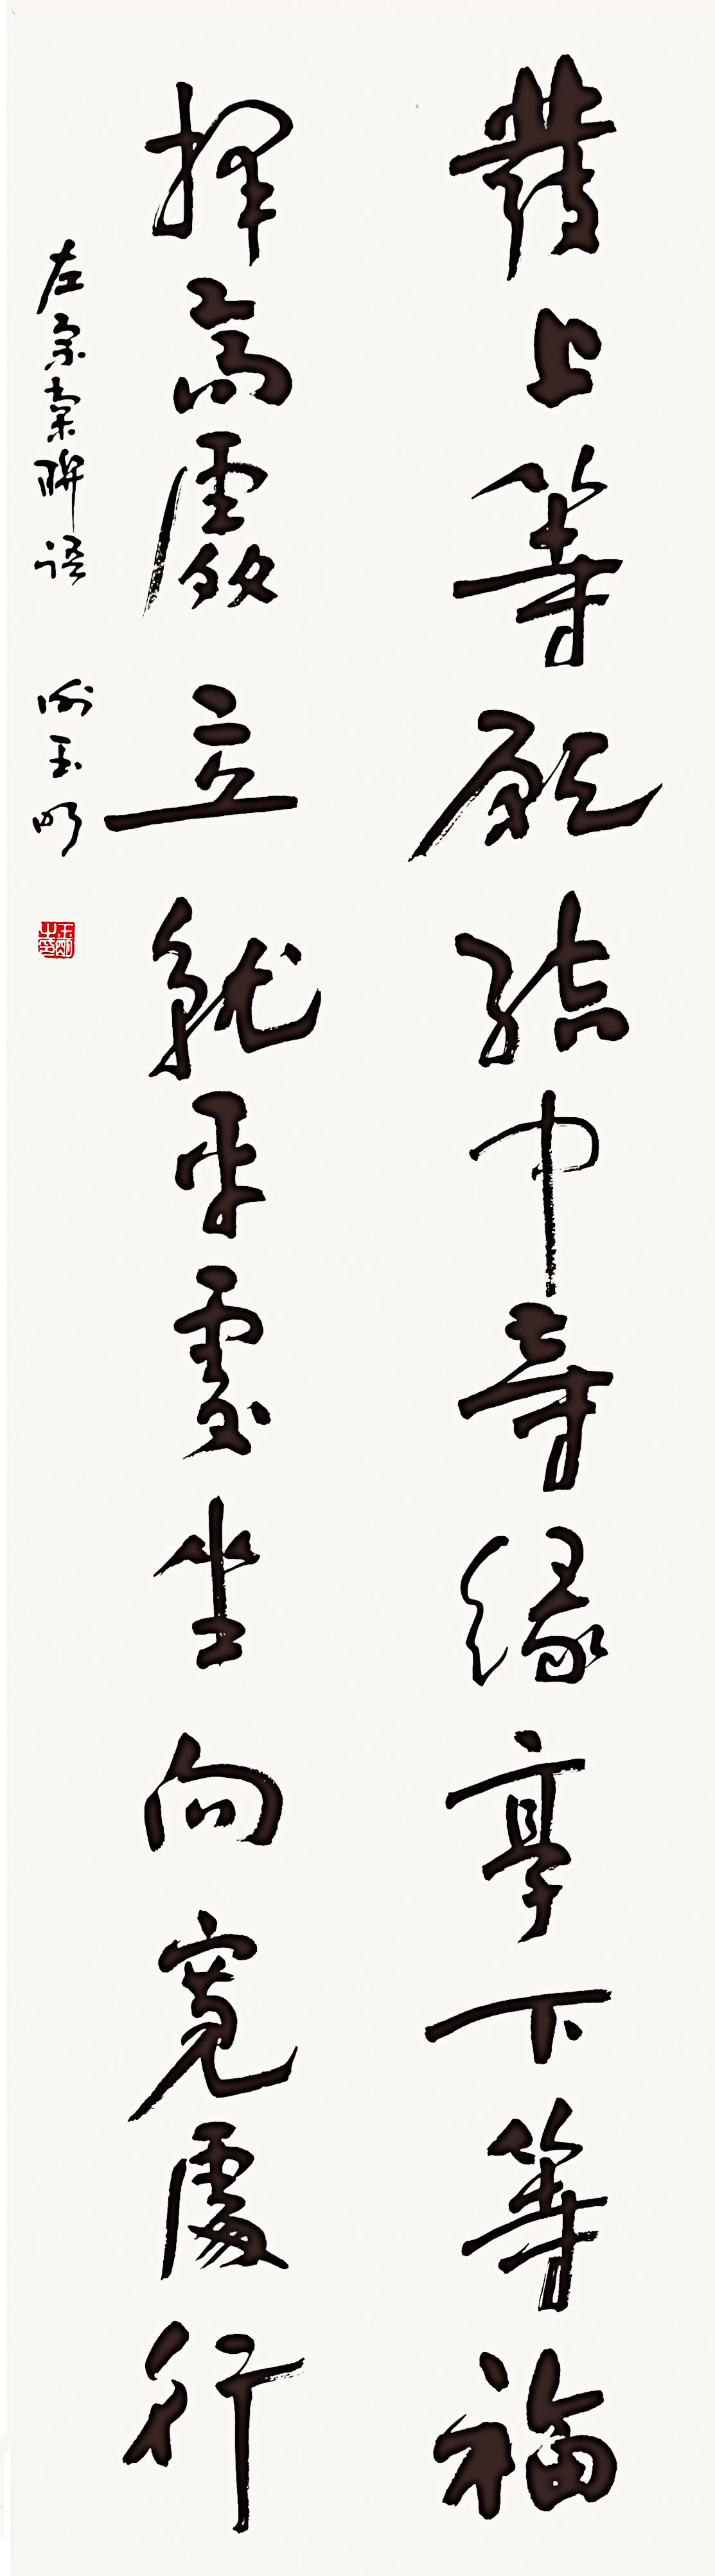 發上等願結中等緣享下等福
擇高處立就平處坐向寬處行
左宗棠聯語 谢玉明